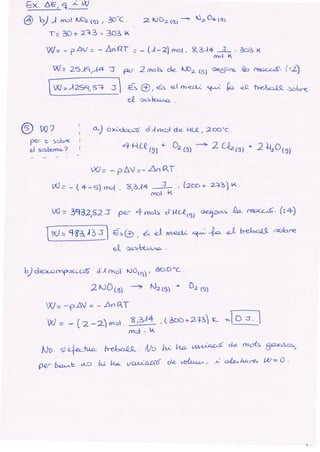 Ex. ΔE, q i W
④ b) 1 mol NO2 (g), 30°C. 2 NO2 (g) → N2O4 (g)
T = 30 + 273 = 303 K
W = - pΔV = - ΔnRT = - (1-2) mol . 8,314 J/mol·K . 303 K
W = 2519,14 J per 2 mols de NO2 (g) segons la reacció. (:2)
W = 1259,57 J És ⊕, és el medi qui fa el treball sobre
el sistema.
⑤ W? per o sobre el sistema? a) oxidació d'1 mol de HCl, 200°C.
4 HCl (g) + O2 (g) → 2 Cl2 (g) + 2 H2O (g)
W = - pΔV = - ΔnRT.
W = - (4-5) mol . 8,314 J/mol·K . (200 + 273) K.
W = 3932,52 J per 4 mols d'HCl (g) segons la reacció. (:4)
W = 983,13 J És ⊕, és el medi qui fa el treball sobre
el sistema.
b) descomposició d'1 mol NO (g), 300°C.
2NO (g) → N2 (g) + O2 (g)
W = - pΔV = - ΔnRT
W = - (2-2) mol . 8,314 J/mol·K . (300 + 273) K = 0 J.
No s'efectua treball. No hi ha variació de mols gasosos,
per tant no hi ha variació de volum, i aleshores W = 0.